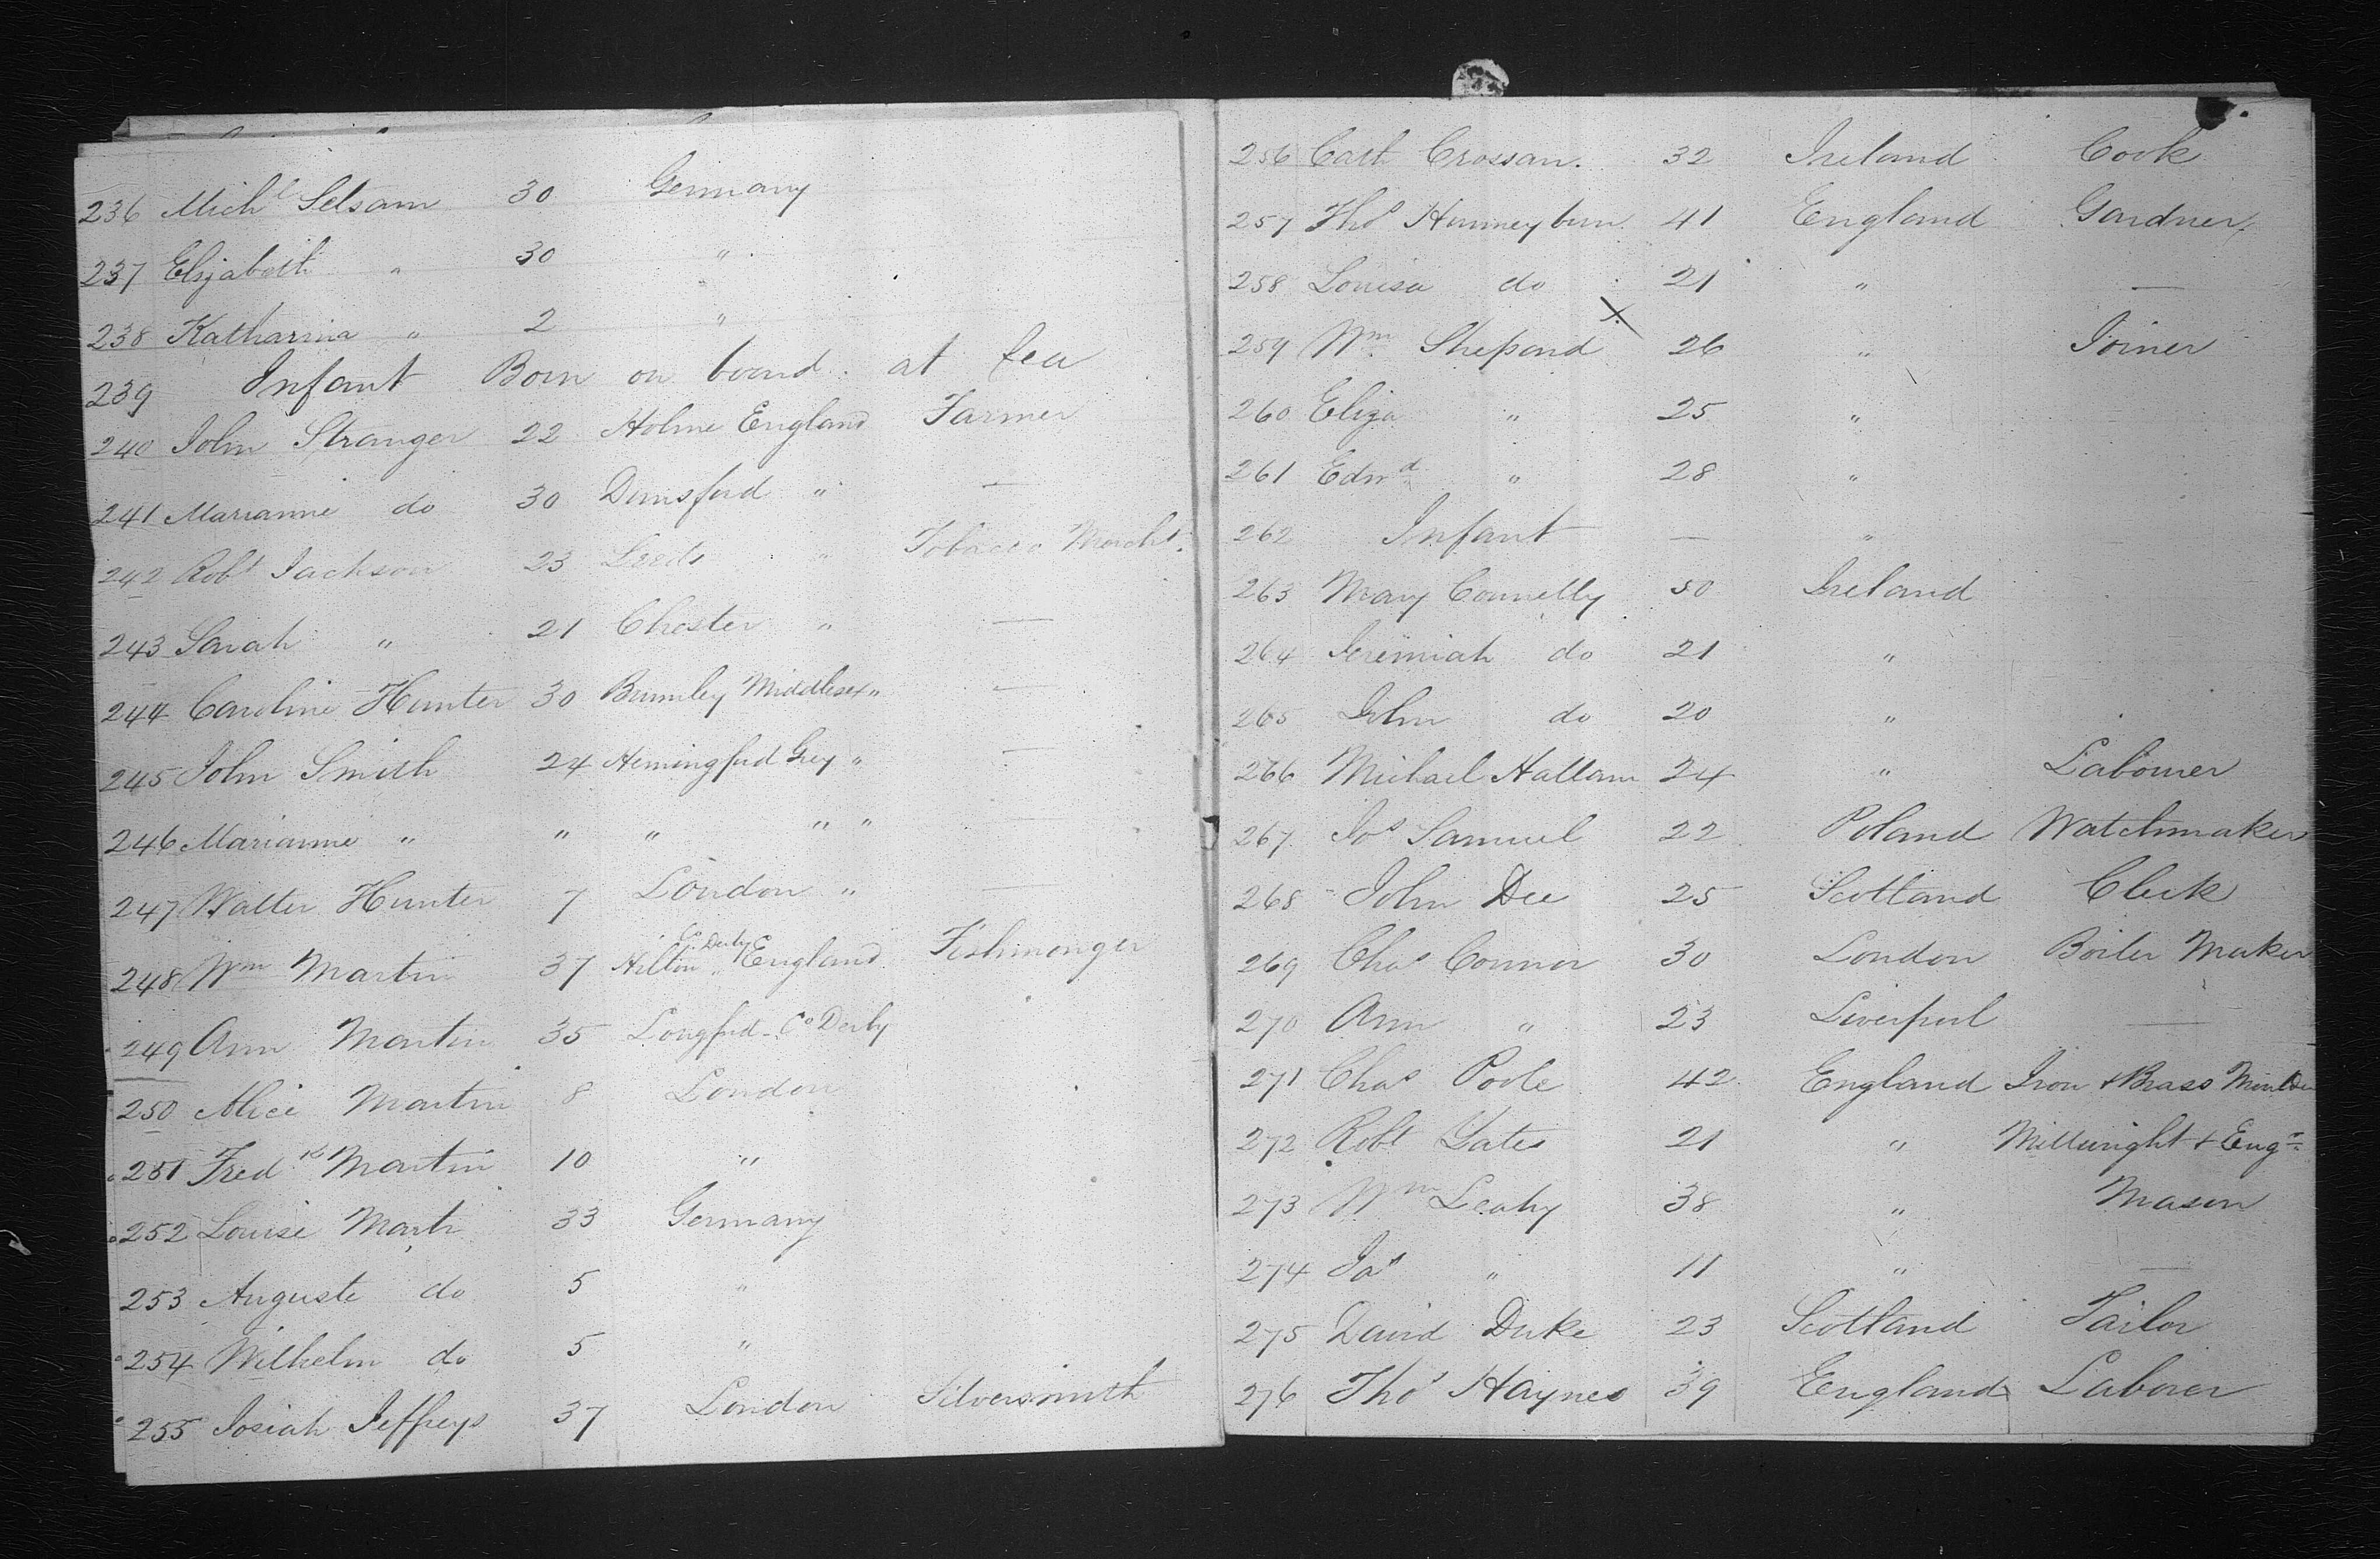 236 Michl Selsam 30 Germany
237 Elizabeth " 30 "
238 Katharina " 2 "
239 Infant Born on board at Sea
240 John Stranger 22 Holme England Farmer
241 Marianne do 30 Dunsford " —
242 Robt Jackson 23 Leeds " Tobacco Mercht.
243 Sarah " 21 Chester " —
244 Caroline Hunter 30 Brumley Middlesex " —
245 John Smith 24 Hemingford Grey " —
246 Marianne " " " " " —
247 Walter Hunter 7 London " —
248 Wm Martin 37 Hilton Co Derby England Fishmonger
249 Ann Martin 35 Longford - Co Derby
250 Alice Martin 8 London
251 Fredk Martin 10 "
252 Louise 33 Germany
253 Auguste do 5 "
254 Wilhelm do 5 "
255 Josiah Jeffreys 37 London Silversmith
256 Cath Crossan. 32 Ireland Cook
257 Thos Hunneybun 41 England Gardner
258 Louisa do 21 " —
259 Wm Shepard X 26 " Joiner
260 Eliza " 25 "
261 Edwd " 28 "
262 Infant — "
263 Mary Connelly 50 Ireland
264 Jeremiah do 21 "
265 John do 20 "
266 Michael Hallam 24 " Labourer
267 Jos Samuel 22 Poland Watchmaker
268 John Dee 25 Scotland Clerk
269 Chas Connor 30 London Boiler Maker
270 Ann " 23 Liverpool —
271 Chas Poole 42 England Iron & Brass
272 Robt Yates 21 " Millwright & Engr
273 Wm Leahy 38 " Mason
274 Jas " 11 " —
275 David Duke 23 Scotland Tailor
276 Thos Haynes 39 England Laborer